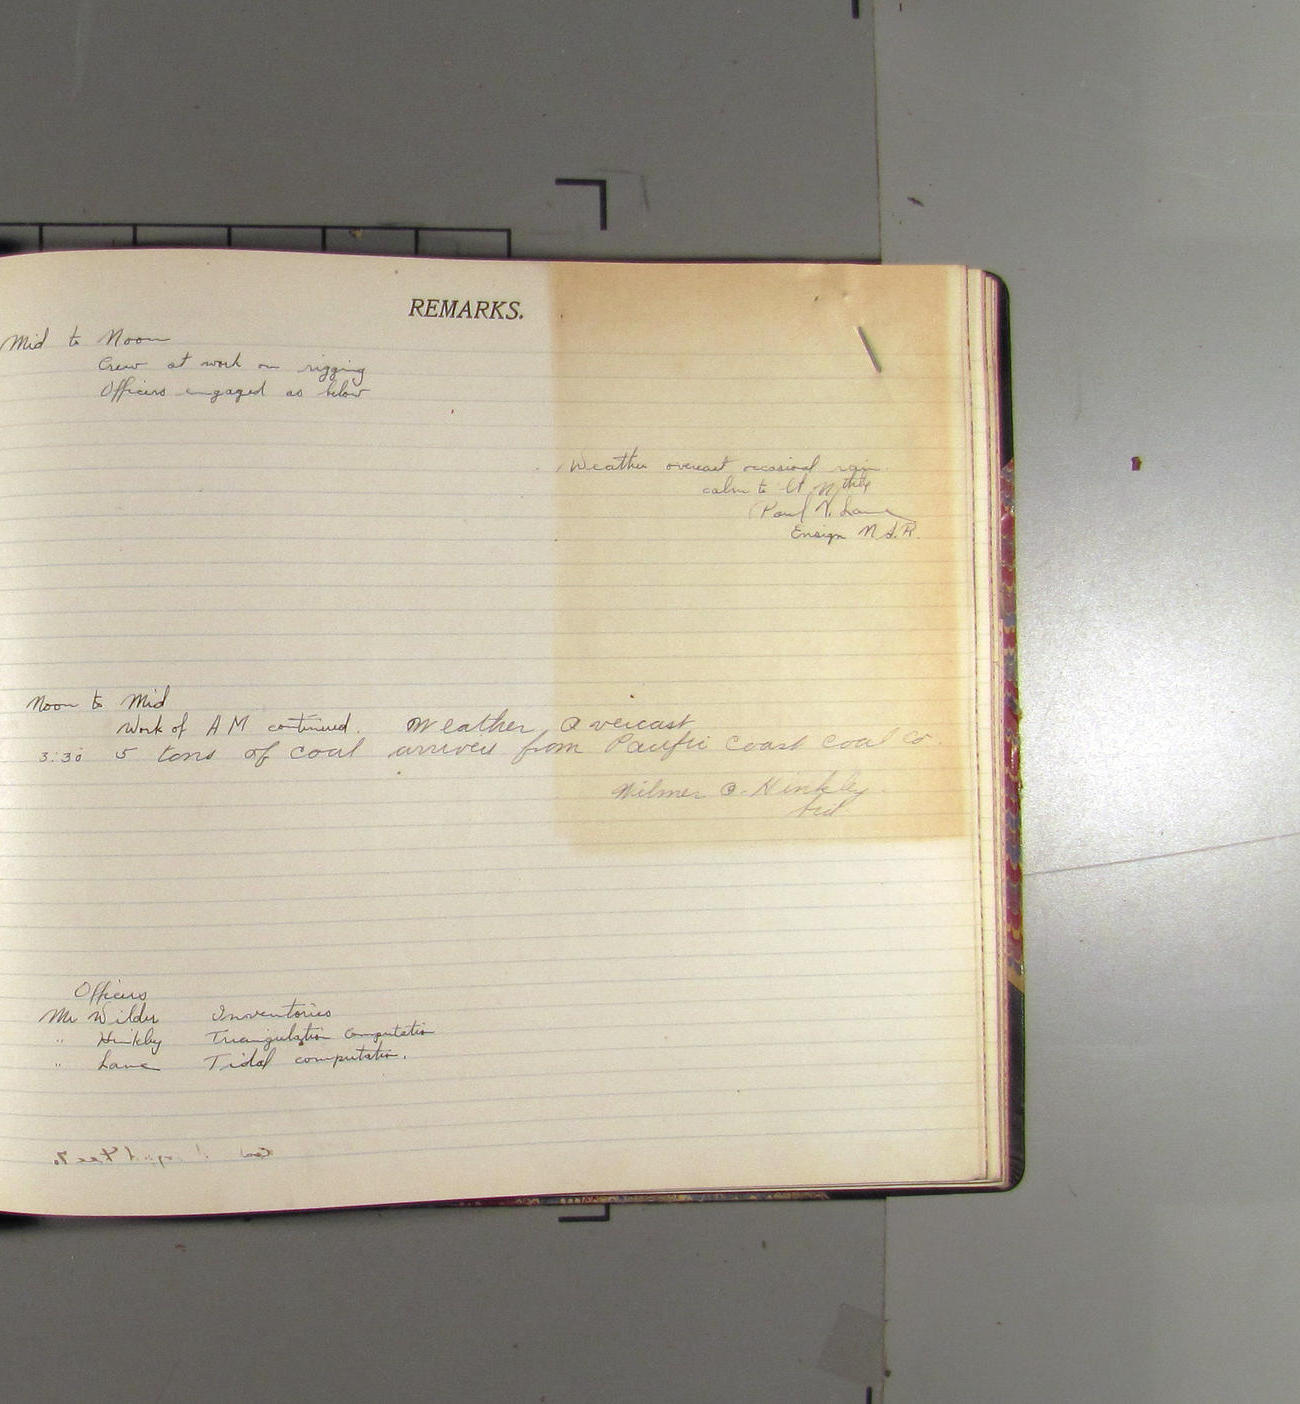 REMARKS.
Mid to Noon
Crew at work on rigging
Officers engaged as below
Weather overcast occasional rain.
calm to lt N'thly
Paul V. Lane
Ensign N.A.R.
Noon to Mid
Work of A M continued. Weather Overcast
3:30 5 tons of coal arrives from Pacific Coast Coal Co.
Wilmer O. Hinkley
Officers
Mr Wilder Inventories
" Hinkley Triangulation Computation
" Lane Tidal computation.